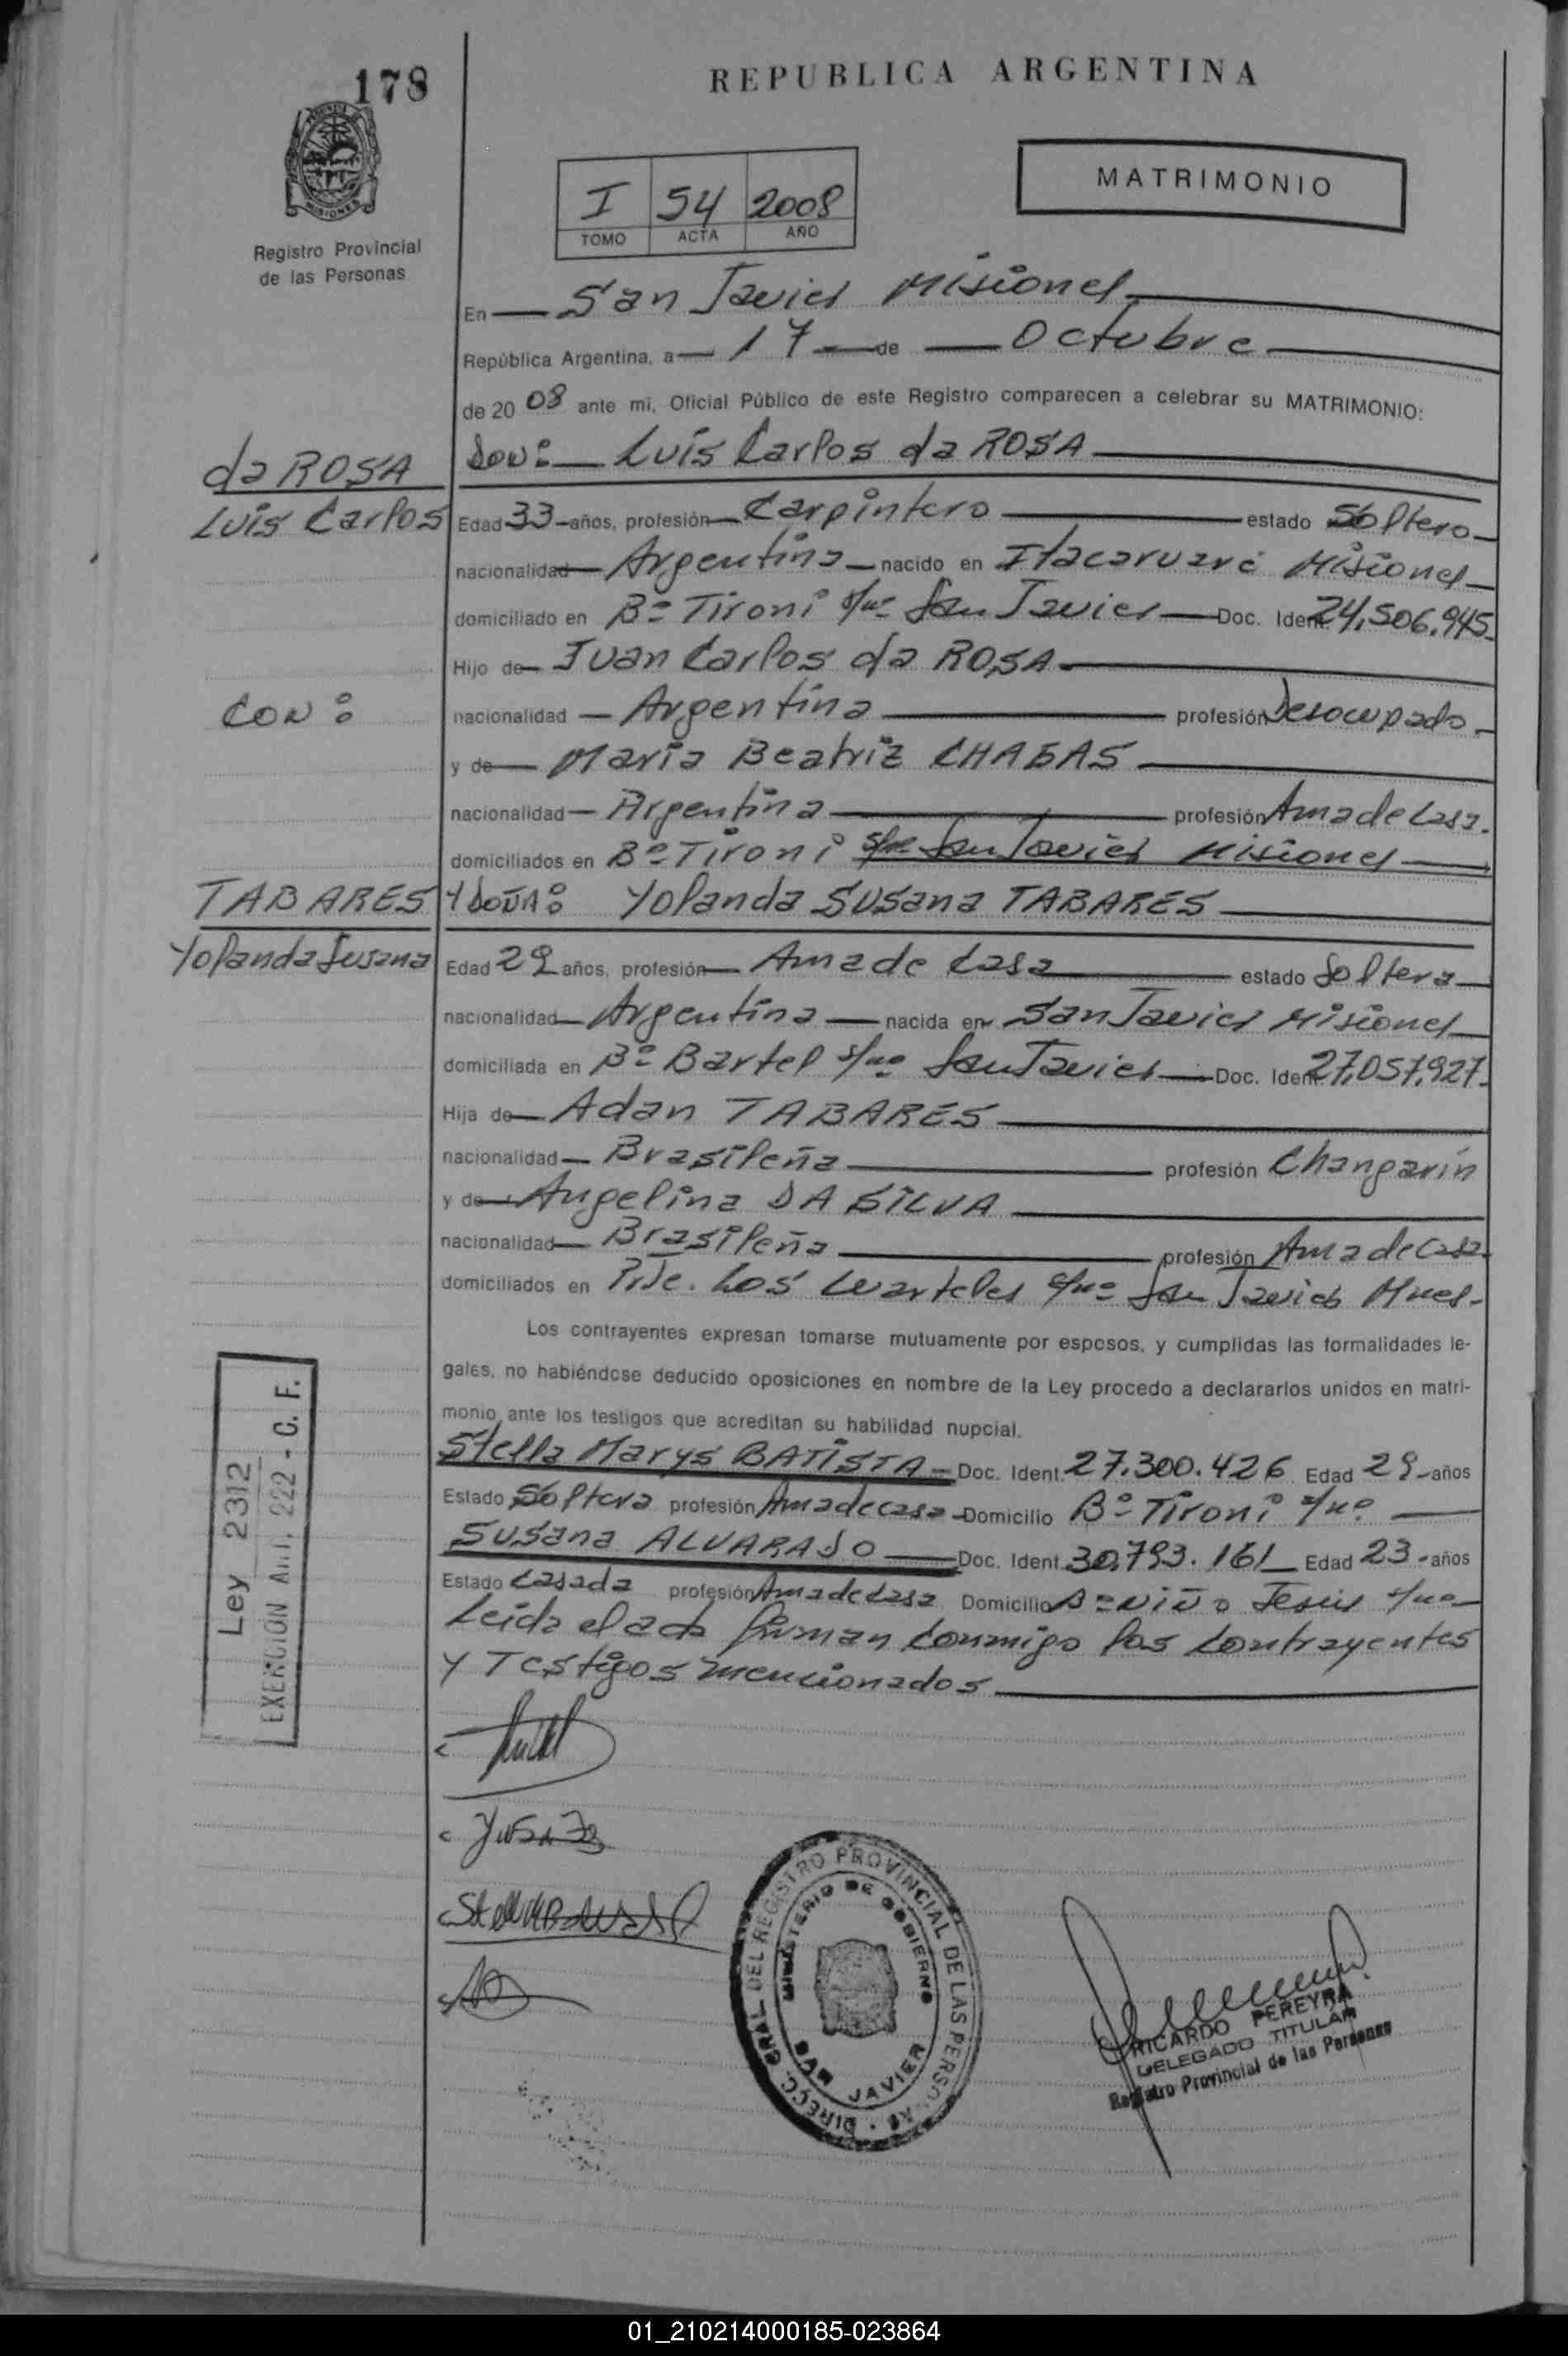 178
REPUBLICA ARGENTINA
MISIONES
Registro Provincial
de las Personas
I 54 2008
TOMO ACTA AÑO
MATRIMONIO
En San Javier Misiones
República Argentina, a 17 de Octubre
de 20 08 ante mi, Oficial Público de este Registro comparecen a celebrar su MATRIMONIO:
da ROSA
Luis Carlos
DON: Luis Carlos da ROSA
Edad 33 años, profesión Carpintero estado Soltero
nacionalidad Argentina nacido en Itacaruaré Misiones
domiciliado en Bº Tironi s/nº San Javier Doc. Ident. 24.506.945
Hijo de Juan Carlos da ROSA
CON:
nacionalidad Argentina profesión Desocupado
y de Maria Beatriz CHAGAS
nacionalidad Argentina profesión Ama de Casa.
domiciliados en Bº Tironi s/nº San Javier Misiones
TABARES
Yolanda Susana
Y DOÑA: Yolanda Susana TABARES
Edad 29 años, profesión Ama de Casa estado Soltera
nacionalidad Argentina nacida en San Javier Misiones
domiciliada en Bº Bartel s/nº San Javier Doc. Ident. 27.057.927
Hija de Adan TABARES
nacionalidad Brasileña profesión Changarín
y de Angelina DA SILVA
nacionalidad Brasileña profesión Ama de Casa
domiciliados en Pje. Los Cuarteles s/nº San Javier Mnes-
Los contrayentes expresan tomarse mutuamente por esposos, y cumplidas las formalidades le-
gales, no habiéndose deducido oposiciones en nombre de la Ley procedo a declararlos unidos en matri-
monio ante los testigos que acreditan su habilidad nupcial.
Stella Marys BATISTA Doc. Ident. 27.300.426 Edad 29 años
Estado Soltera profesión Ama de casa Domicilio Bº Tironi s/nº
Susana ALVARADO Doc. Ident. 30.793.161 Edad 23 años
Estado Casada profesión Ama de Casa Domicilio Bº Niño Jesús s/nº
Leída el acta firman conmigo los Contrayentes
y Testigos mencionados
Ley 2312
EXENCION Art. 222 - C. F.
DIRECC. GRAL DEL REGISTRO PROVINCIAL DE LAS PERSONAS
MINISTERIO DE GOBIERNO
SAN JAVIER
RICARDO PEREYRA
DELEGADO TITULAR
Registro Provincial de las Personas
01_210214000185-023864